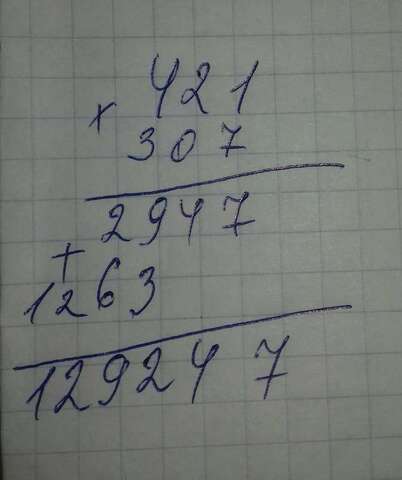 421
×
307
2947
+
1263
129247